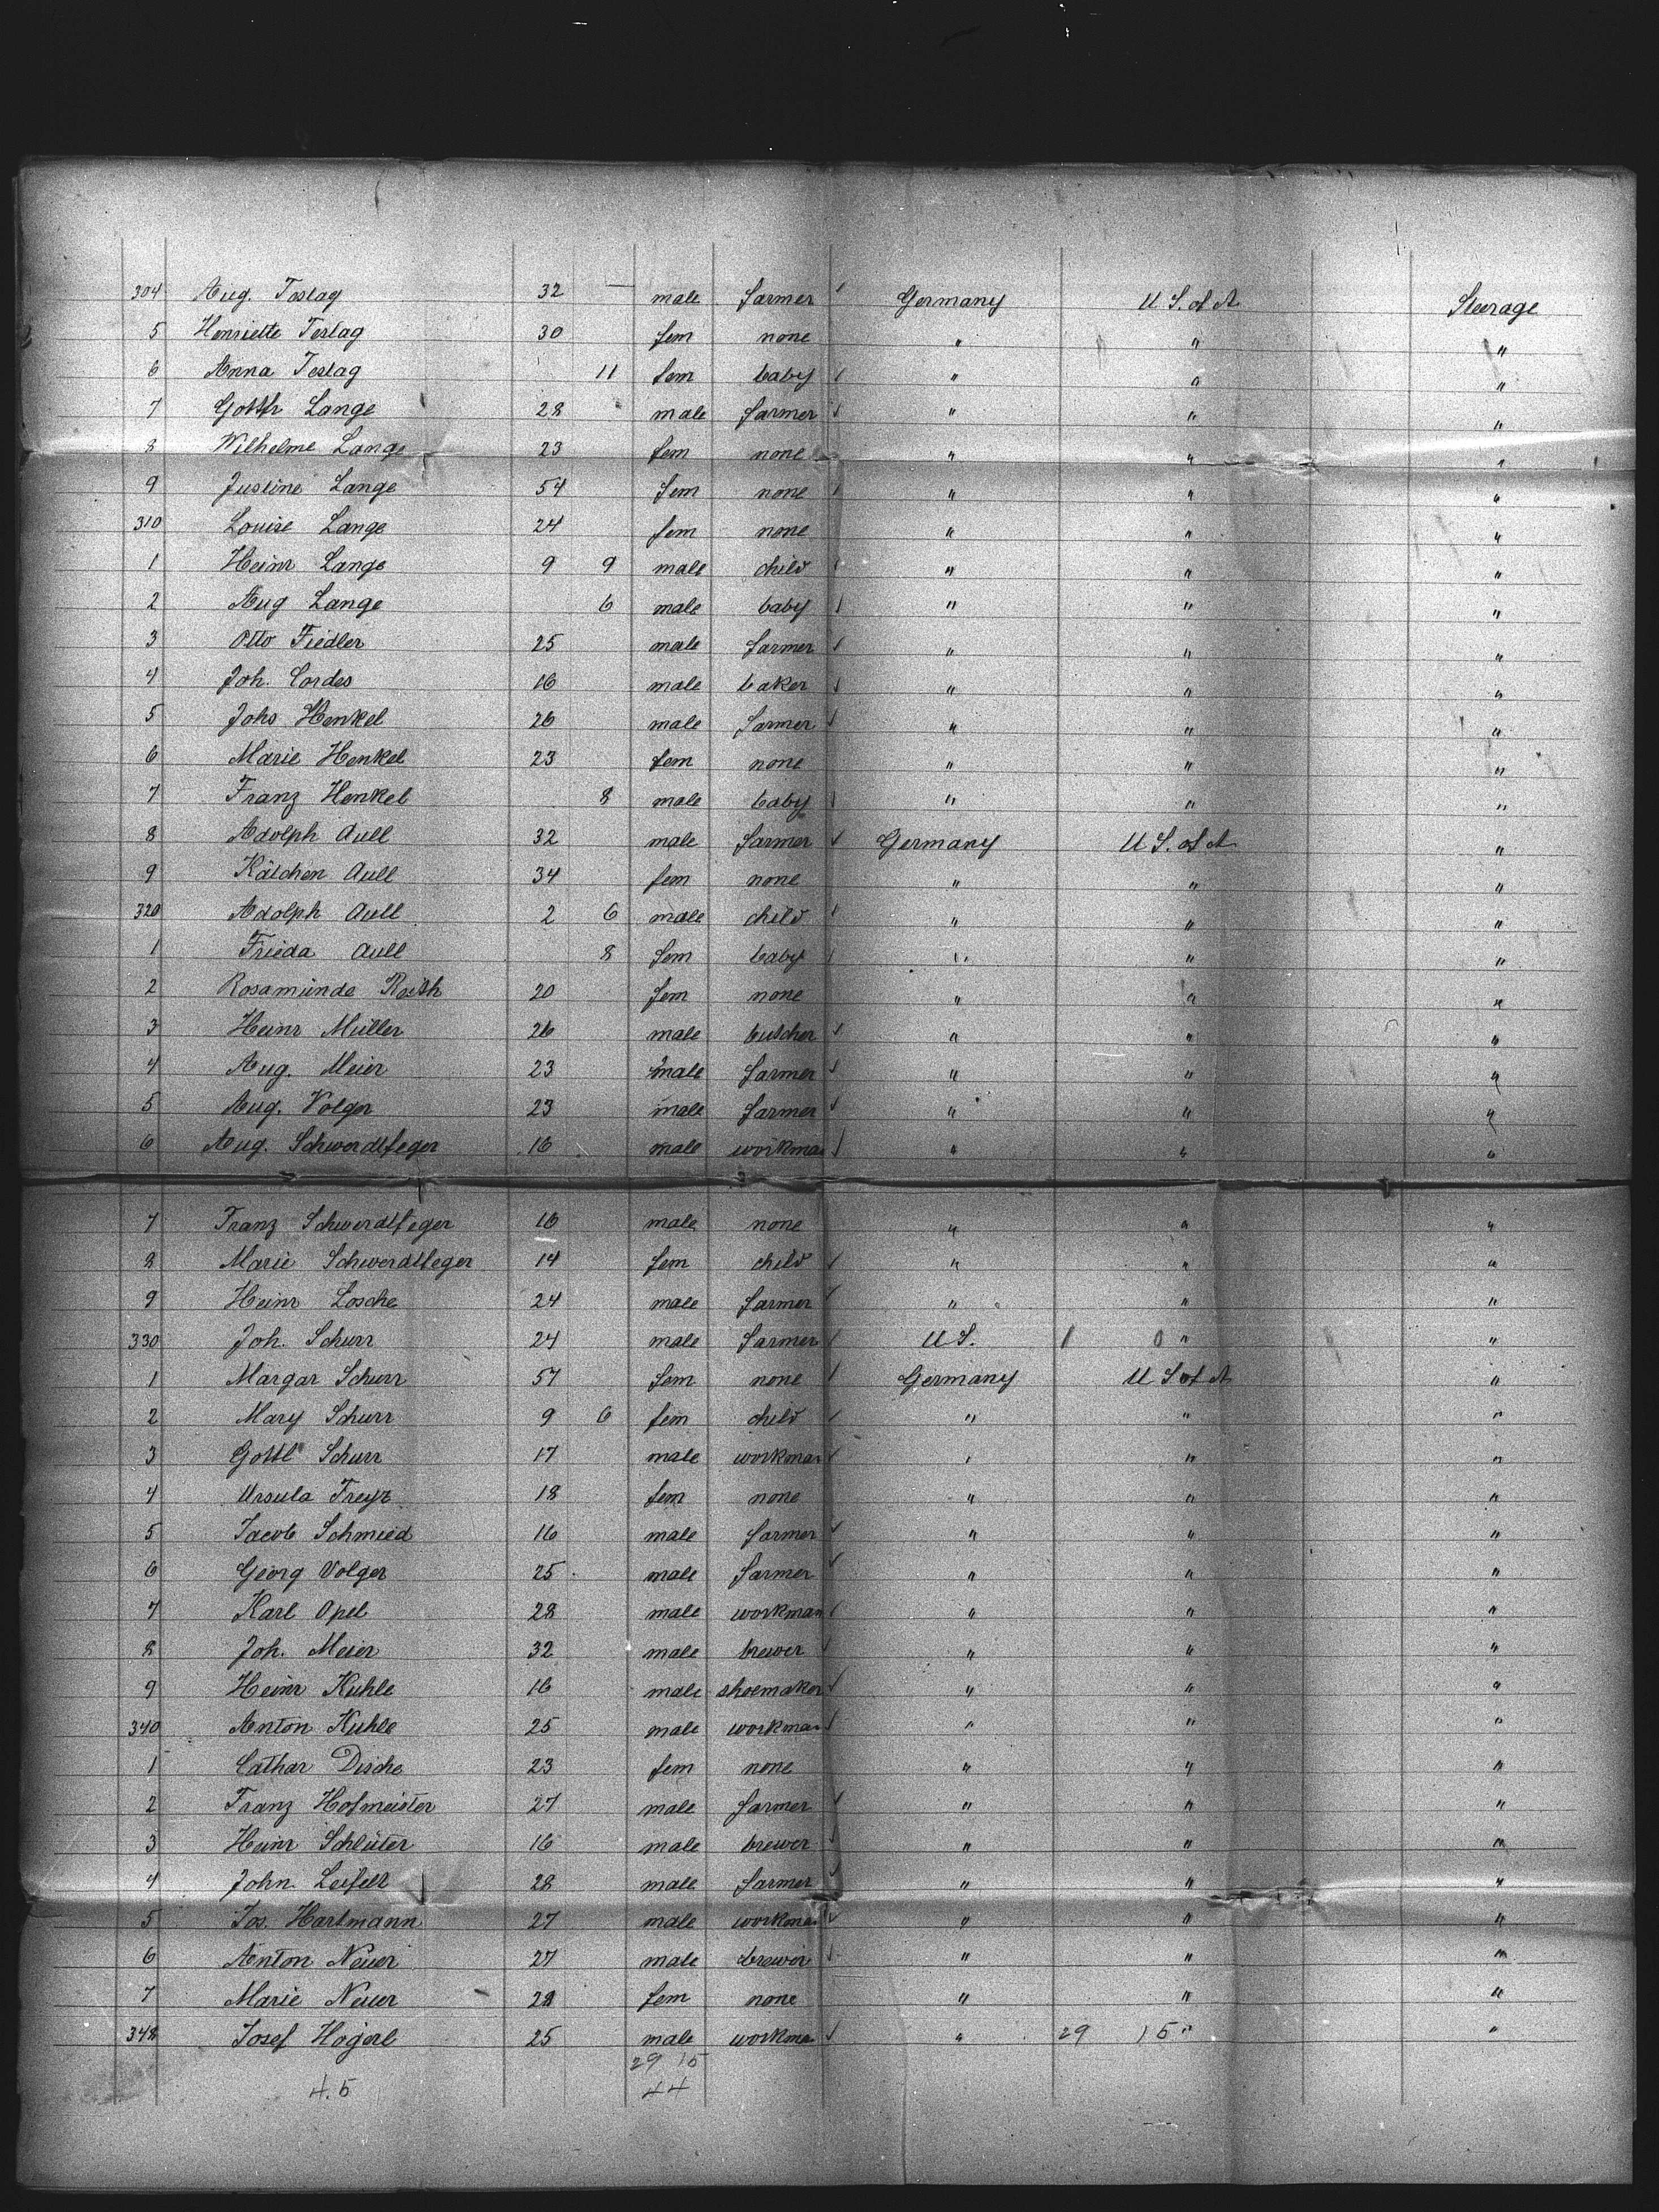 304 Aug. Teslag 32 — male farmer Germany U S. of A Steerage
5 Henriette Teslag 30 fem none " " "
6 Anna Teslag 11 fem baby " " "
7 Gottfr Lange 28 male farmer " " "
8 Wilhelme Lange 23 fem none " " "
9 Justine Lange 54 fem none " " "
310 Louise Lange 24 fem none " " "
1 Heinr Lange 9 9 male child " " "
2 Aug Lange 6 male baby " " "
3 Otto Fiedler 25 male farmer " " "
4 Joh. Cordes 16 male baker " " "
5 Johs Henkel 26 male farmer " " "
6 Marie Henkel 23 fem none " " "
7 Franz Henkel 8 male baby " " "
8 Adolph Aull 32 male farmer Germany U S. of A "
9 Kätchen Aull 34 fem none " " "
320 Adolph Aull 2 6 male child " " "
1 Frieda Aull 8 fem baby " " "
2 Rosamunde 20 fem none " " "
3 Heinr Müller 26 male butcher " " "
4 Aug. Meier 23 male farmer " " "
5 Aug. Volger 23 male farmer " " "
6 Aug. Schwerdtfeger 16 male workman " " "
7 Franz Schwerdtfeger 16 male none " " "
8 Marie Schwerdtfeger 14 fem child " " "
9 Heinr Losche 24 male farmer " " "
330 Joh. Schurr 24 male farmer U S. 1 0 " "
1 Margar Schurr 57 fem none Germany U S of A "
2 Mary Schurr 9 6 fem child " " "
3 Gottl Schurr 17 male workman " " "
4 Ursula Freyz 18 fem none " " "
5 Jacob Schmied 16 male farmer " " "
6 Georg Volger 25 male farmer " " "
7 Karl Opel 28 male workman " " "
8 Joh. Meier 32 male brewer " " "
9 Heinr Kuhle 16 male shoemaker " " "
340 Anton Kuhle 25 male workman " " "
1 Cathar Dische 23 fem none " " "
2 Franz Hofmeister 27 male farmer " " "
3 Heinr Schlüter 16 male brewer " " "
4 John. Leifelt 28 male farmer " " "
5 Jos. Hartmann 27 male workman " " "
6 Anton Neuer 27 male brewer " " "
7 Marie Neuer 28 fem none " " "
348 Josef Hogerl 25 male workma " 29 15 " "
29 15
4.5 44